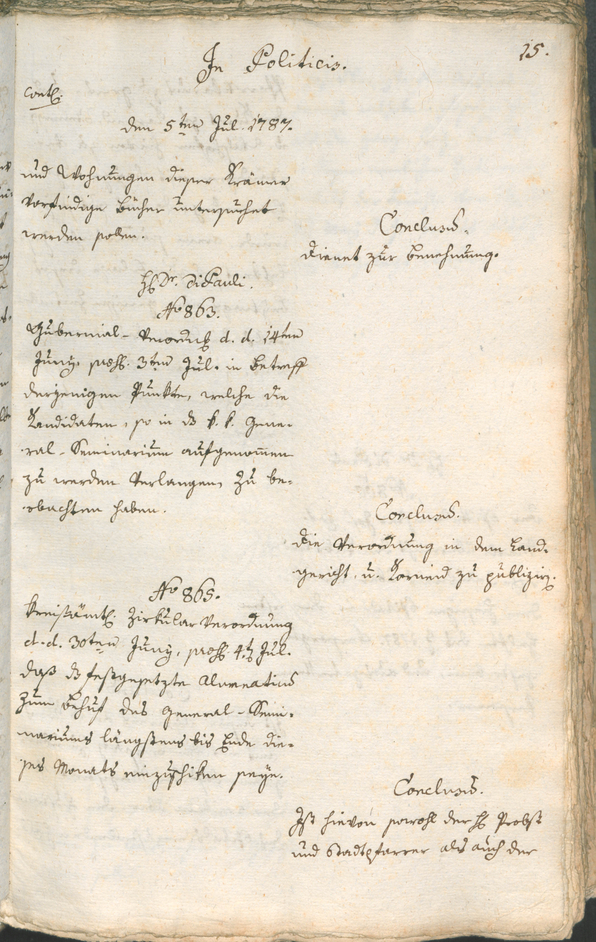 In Politicis.
15.
contt:
den 5ten Jul. 1787.
und Wohnungen dieser Krämer
vorfindige Bücher untersuchet
werden sollen.
Conclusũ.
dienet zur benehmung.
H. Dr. DiPauli.
No 863.
Gubernial-Verordng d. d. 14ten
Juny, præss. 3ten Jul. in betreff
derjenigen Punkte, welche die
Kandidaten, so in ds k. k. Gene-
ral-Seminarium aufgenommen
zu werden verlangen, zu be-
obachten haben.
Conclusũ.
die Verordnung in dem Land-
gericht u. Karneid zu publizirn.
No 865.
Kreisämtl. Zirkular Verordnung
d. d. 30ten Juny, præss. 4t Jul.
daß ds festgesetzte Alumaticũ
zum behuf des General-Semi-
nariums längstens bis Ende die-
ses Monats einzuschiken seye.
Conclusũ.
Ist hievon sowohl der H. Probst
und Stadtpfarrer als auch der